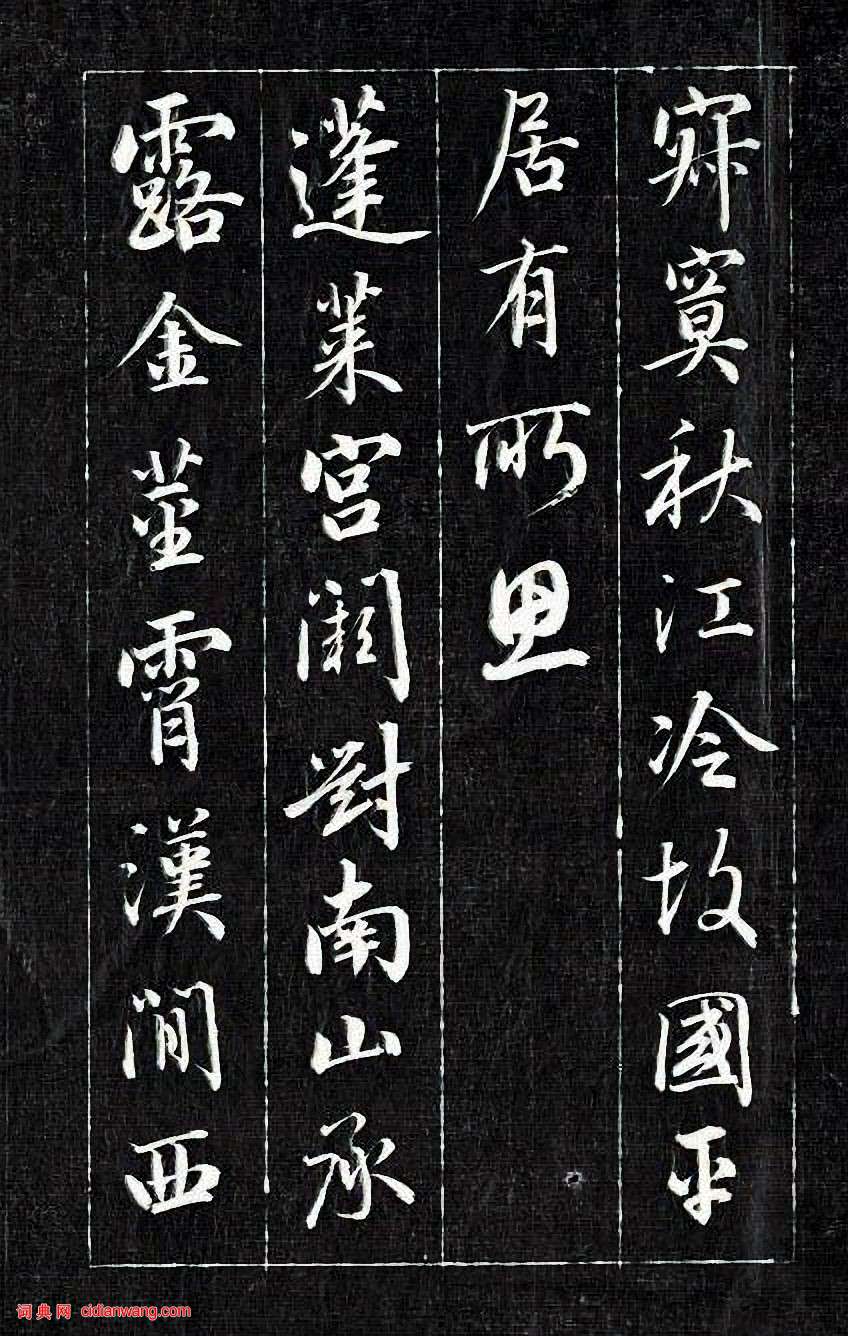 寂寞秋江冷故國平
居有所思
蓬萊宮闕對南山承
露金莖霄漢間西
词典网 cidianwang.com